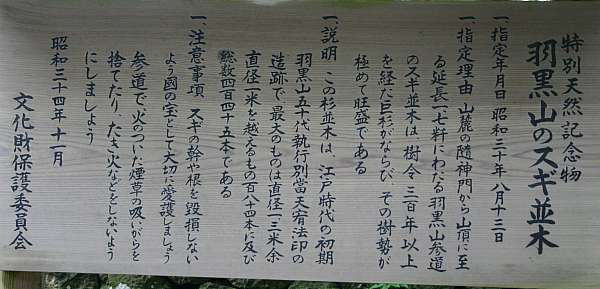 特別天然記念物
羽黒山のスギ並木
一、指定年月日 昭和三十年八月十三日
一、指定理由 山麓の随神門から山頂に至
る延長一、七粁にわたる羽黒山参道
のスギ並木は、樹令三百年以上
を経た巨杉がならび、その樹勢が
極めて旺盛である
一、説明 この杉並木は、江戸時代の初期
羽黒山五十代執行別当天宥法印の
造跡で、最大のものは直径一、三米余
直径一米を越えるもの百八十四本に及び
総数四百四十五本である
一、注意事項 スギの幹や根を毀損しない
よう国の宝として大切に愛護しましょう
参道で、火のついた煙草の吸いがらを
捨てたり、たき火などをしないよう
にしましょう
昭和三十四年十一月
文化財保護委員会